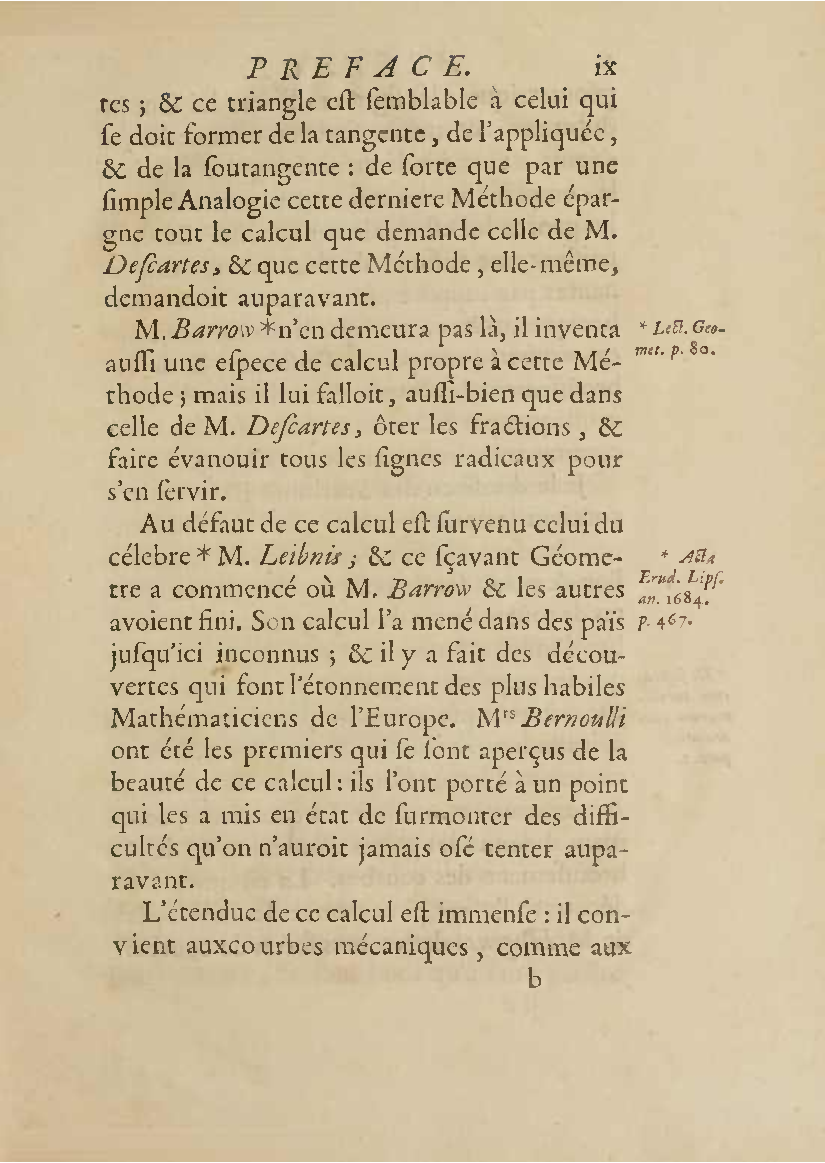 PREFACE. ix
tes ; & ce triangle eſt ſemblable à celui qui
ſe doit former de la tangente, de l'appliquée,
& de la ſoutangente : de ſorte que par une
ſimple Analogie cette derniere Méthode épar-
gne tout le calcul que demande celle de M.
Deſcartes, & que cette Méthode, elle-même,
demandoit auparavant.
M. Barrow * n'en demeura pas là, il inventa
* Lect. Geo-
auſſi une eſpece de calcul propre à cette Mé-
met. p. 80.
thode ; mais il lui falloit, auſſi-bien que dans
celle de M. Deſcartes, ôter les fractions, &
faire évanouir tous les ſignes radicaux pour
s'en ſervir.
Au défaut de ce calcul eſt ſurvenu celui du
célebre * M. Leibnis ; & ce ſçavant Géome-
* Acta
tre a commencé où M. Barrow & les autres
Erud. Lipſ.
an. 1684.
avoient fini. Son calcul l'a mené dans des païs
p. 467.
juſqu'ici inconnus ; & il y a fait des décou-
vertes qui font l'étonnement des plus habiles
Mathématiciens de l'Europe. Mrs Bernoulli
ont été les premiers qui ſe ſont aperçus de la
beauté de ce calcul : ils l'ont porté à un point
qui les a mis en état de ſurmonter des diffi-
cultés qu'on n'auroit jamais oſé tenter aupa-
ravant.
L'étendue de ce calcul eſt immenſe : il con-
vient auxcourbes mécaniques, comme aux
b